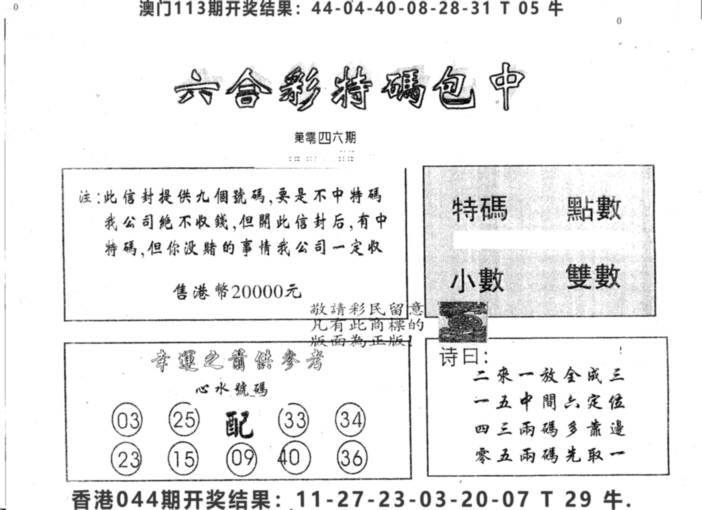 澳门113期开奖结果：44-04-40-08-28-31 T 05 牛
六合彩特碼包中
第零四六期
注:此信封提供九個號碼,要是不中特碼
我公司絶不收錢,但開此信封后,有中
特碼,但你没賭的事情我公司一定收
售港幣20000元
特碼 點數
小數 雙數
敬請彩民留意
凡有此商標的
版面為正版!
幸運之箭供參考
心水號碼
03 25 配 33 34
23 15 09 40 36
诗曰:
二來一放全成三
一五中間六定位
四三兩碼多靠邊
零五兩碼先取一
香港044期开奖结果：11-27-23-03-20-07 T 29 牛.